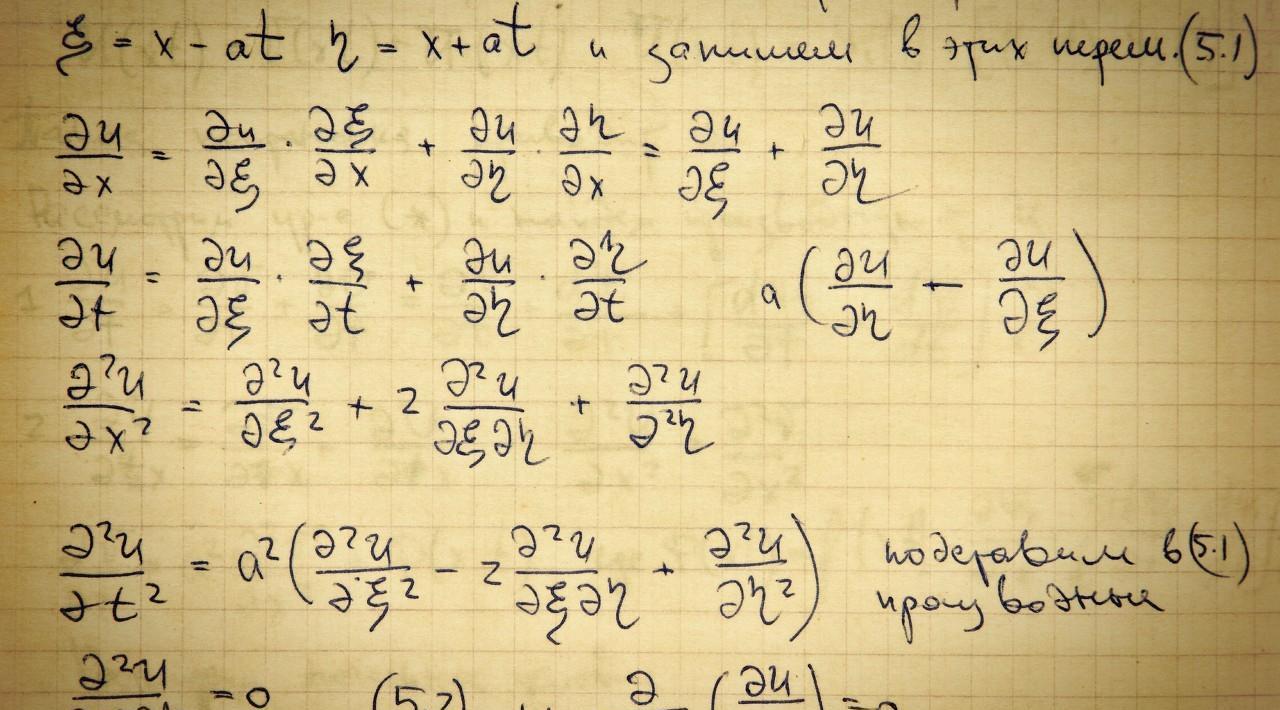 ξ = x - at η = x + at и запишем в этих перем. (5.1)
∂u/∂x = ∂u/∂ξ · ∂ξ/∂x + ∂u/∂η · ∂η/∂x = ∂u/∂ξ + ∂u/∂η
∂u/∂t = ∂u/∂ξ · ∂ξ/∂t + ∂u/∂η · ∂η/∂t a(∂u/∂η - ∂u/∂ξ)
∂²u/∂x² = ∂²u/∂ξ² + 2 ∂²u/∂ξ∂η + ∂²u/∂²η
∂²u/∂t² = a²(∂²u/∂ξ² - 2 ∂²u/∂ξ∂η + ∂²u/∂η²) подставим в (5.1)
производные
∂²u = 0 (5.2) ∂ (∂u ) =